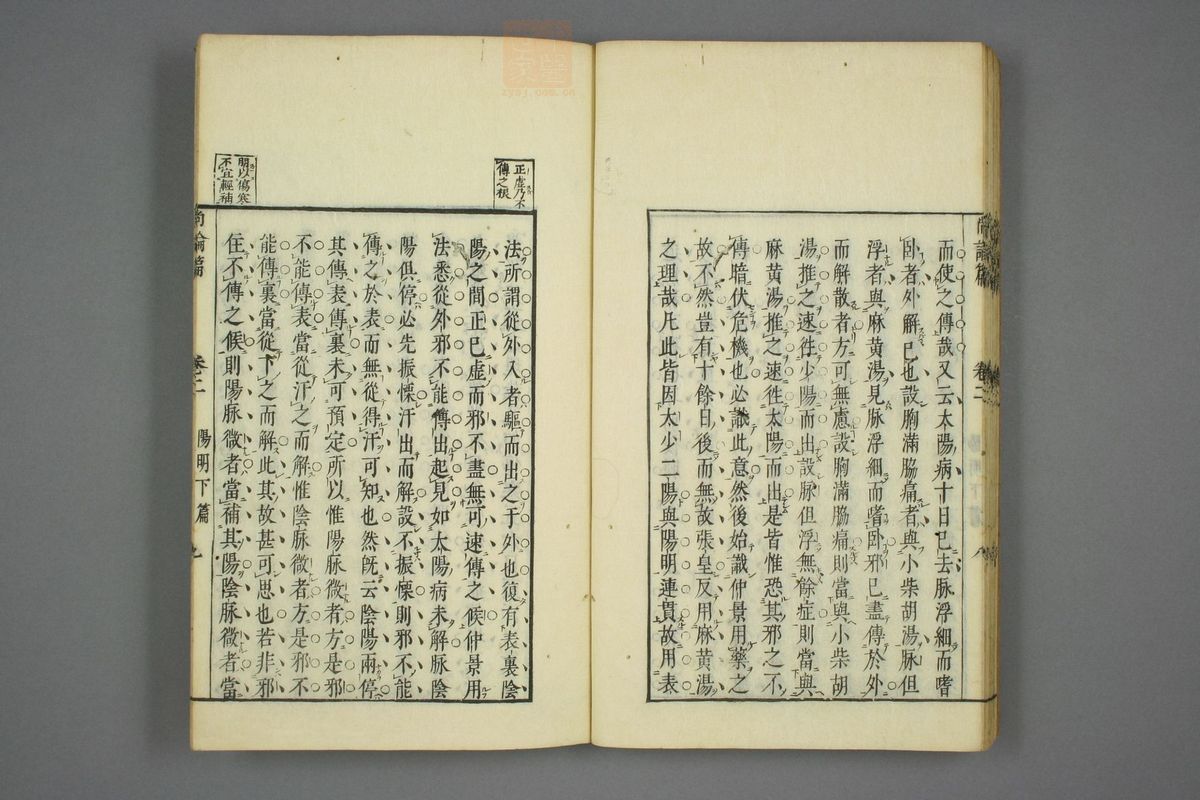 而使之傳哉又云太陽病十日已去脉浮細而嗜
臥者外解已也設胸滿脇痛者與小柴胡湯脉但
浮者與麻黄湯見脉浮細而嗜臥邪已盡傳於外
而解散者方可無慮設胸滿脇痛則當與小柴胡
湯推之速徃少陽而出設脉但浮無餘症則當與
麻黄湯推之速徃太陽而出是皆惟恐其邪之不
傳暗伏危機也必識此意然後始識仲景用藥之
故不然豈有十餘日後而無故張皇反用麻黄湯
之理哉凡此皆因太少二陽與陽明連貫故用表
尚論篇 卷二
正虛乃不
傳之根
法所謂從外入者驅而出之于外也復有表裏陰
陽之間正已虛而邪不盡無可速傳之候仲景用
法悉從外邪不能傳出起見如太陽病未解脉陰
陽俱停必先振慄汗出而解設不振慄則邪不能
傳之於表而無從得汗可知也然既云陰陽兩停
其傳表傳裏未可預定所以惟陽脉微者方是邪
不能傳表當從汗之而解惟陰脉微者方是邪不
能傳裏當從下之而解此其故甚可思也若非邪
住不傳之候則陽脉微者當補其陽陰脉微者當
明以傷寒
不宜輕補
尚論篇 卷二 陽明下篇
zysj.com.cn